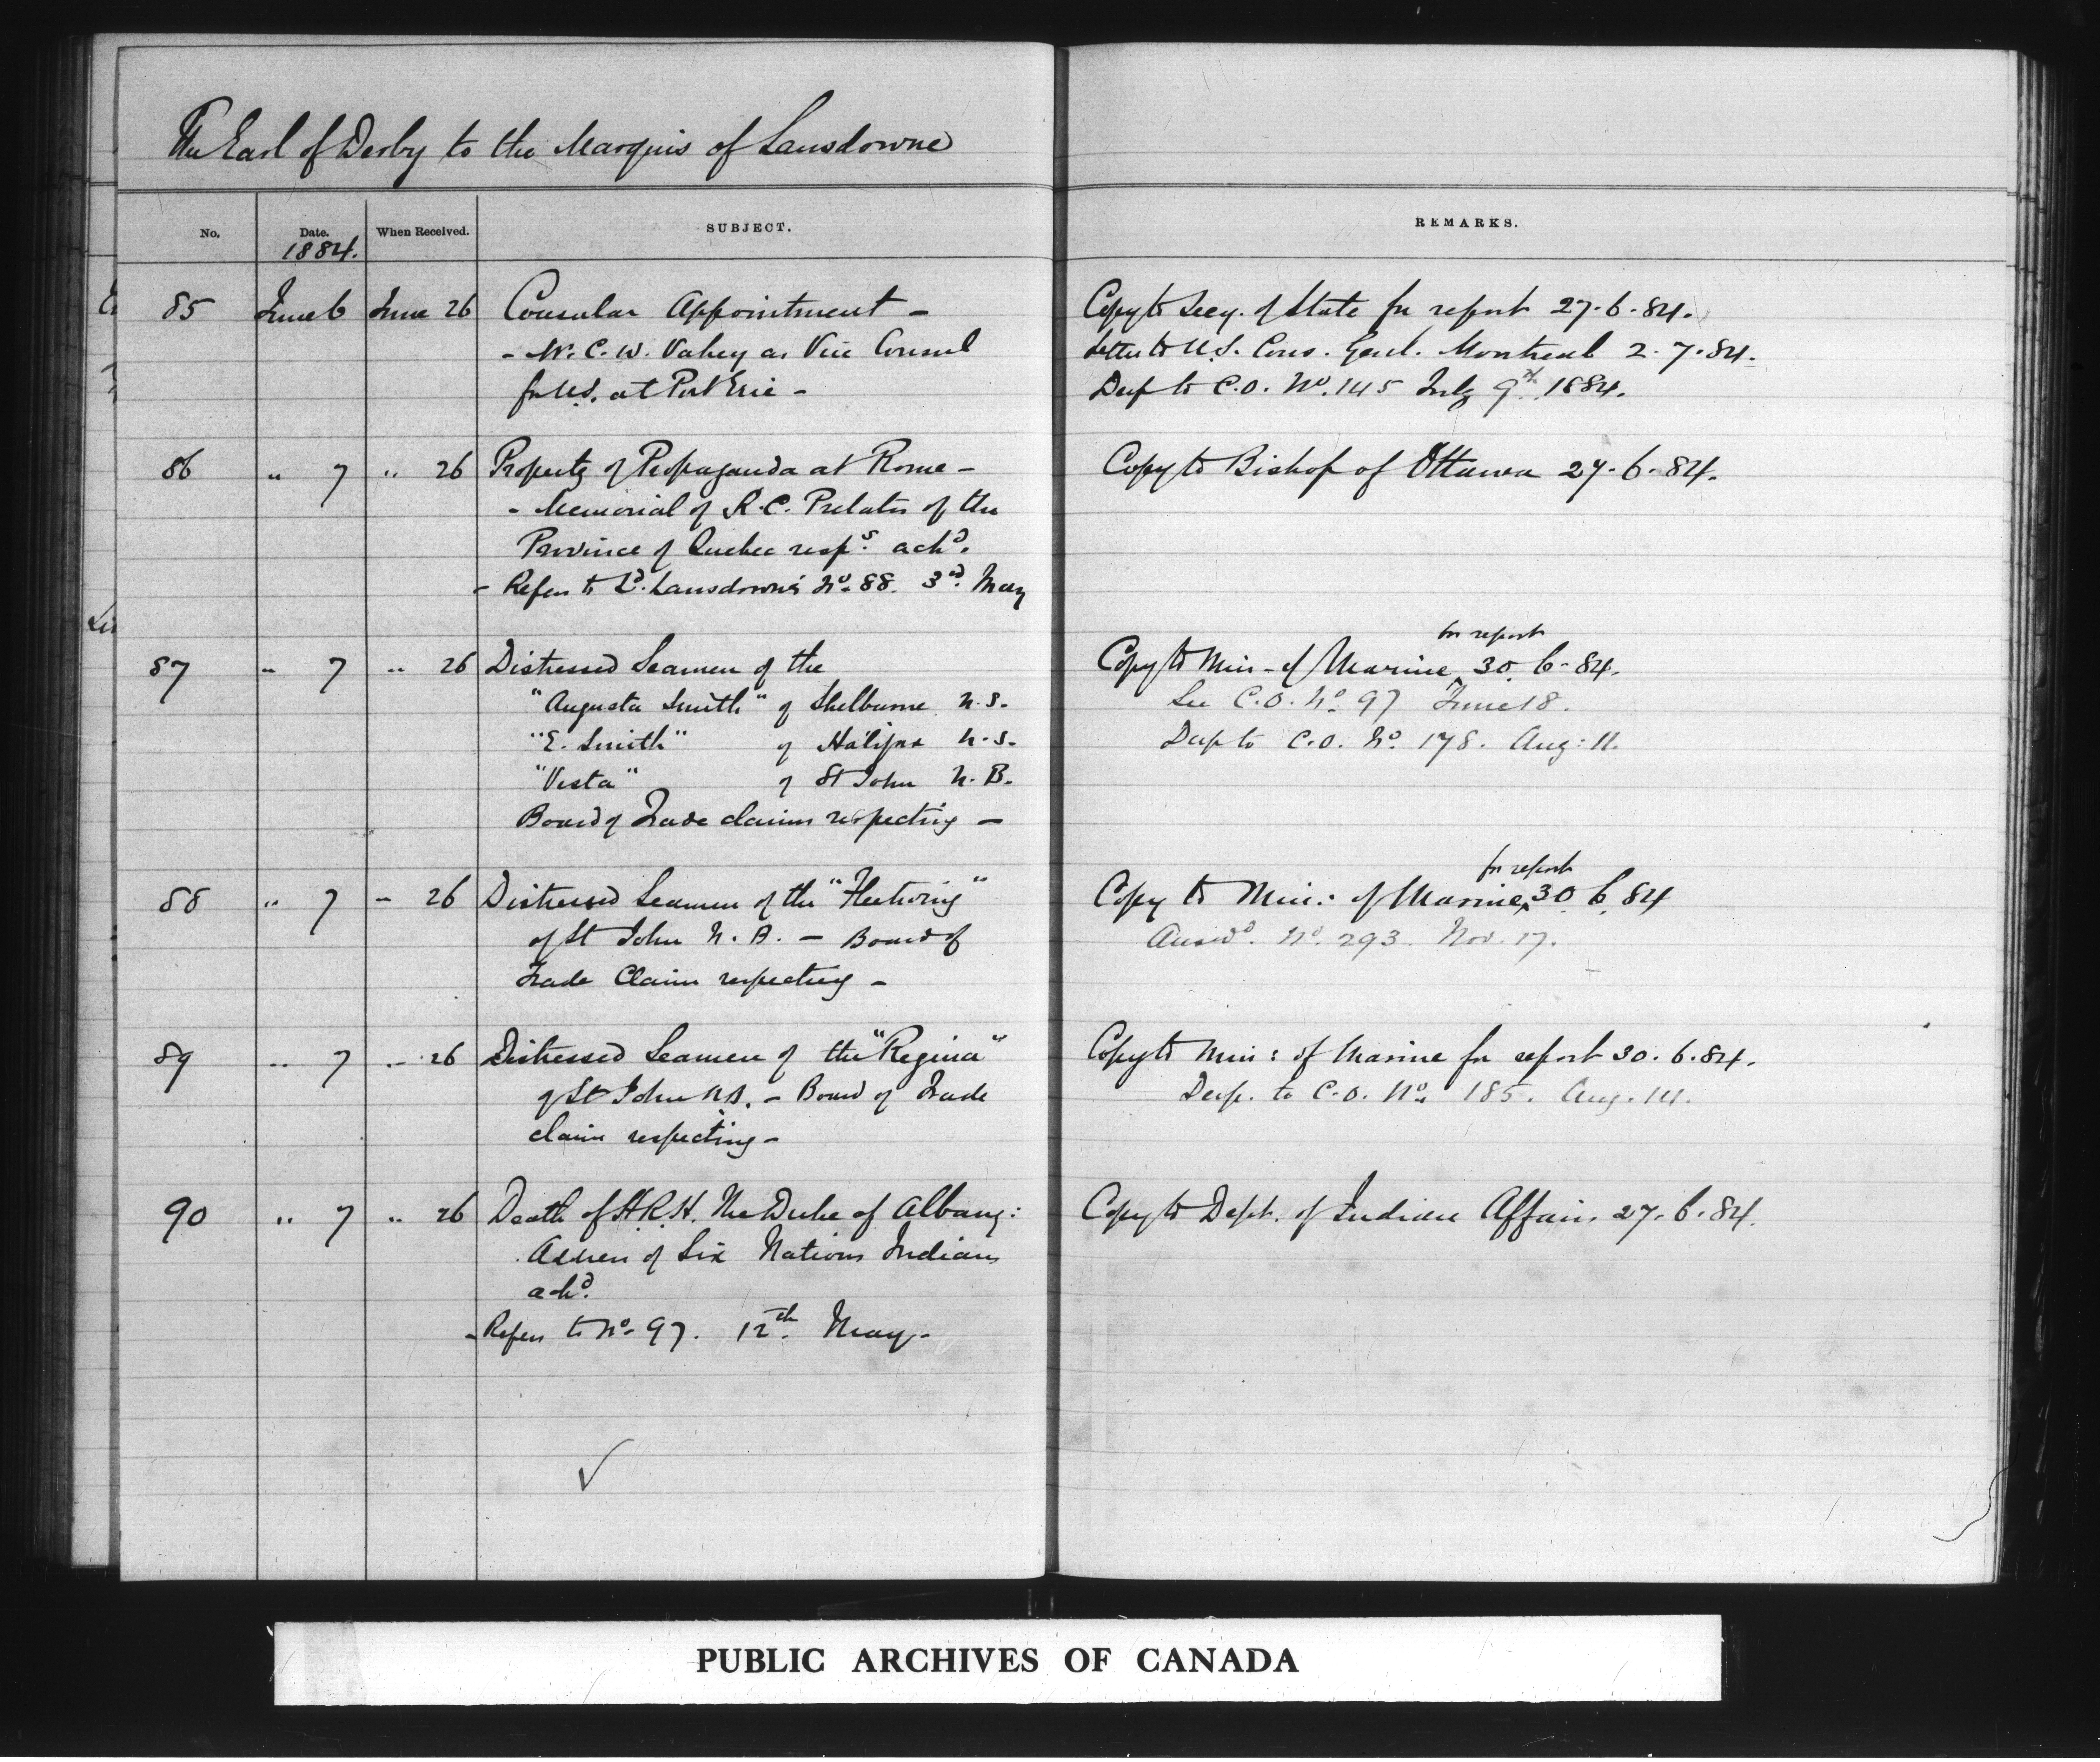 The Earl of Derby to the Marquis of Lansdowne
No. Date. When Received. SUBJECT. REMARKS.
1884.
85 June 6 June 26 Consular Appointment - Copy to Secy. of State for report 27.6.84.
- W. C. W. Vahey as Vice Consul Letter to U.S. Cons. Genl. Montreal 2.7.84.
for U.S. at Fort Erie - Desp to C.O. No. 145 July 9th 1884.
86 " 7 " 26 Property of Propaganda at Rome - Copy to Bishop of Ottawa 27.6.84.
- Memorial of R.C. Prelates of the
Province of Quebec resps. ackd.
- Refers to Ld. Lansdowne's No. 88. 3rd. May
for report
87 " 7 " 26 Distressed Seamen of the Copy to Min - of Marine 30.6-84.
"Augusta Smith" of Shelburne N.S. See C.O. No. 97 June 18.
"E. Smith" of Halifax N.S. Desp to C.O. No. 178. Aug: 11.
"Vesta" of St John N.B.
Board of Trade claims respecting -
for report
88 " 7 - 26 Distressed Seamen of the "Fleetwing" Copy to Min: of Marine 30 6. 84
of St John N.B. - Board of Answd. No. 293. Nov. 17.
Trade Claim respecting -
89 " 7 " 26 Distressed Seamen of the "Regina" Copy to Min: of Marine for report 30.6.84.
of St John N.B. - Board of Trade Desp. to C.O. No. 185. Aug. 14.
claim respecting -
90 " 7 " 26 Death of H.R.H. The Duke of Albany: Copy to Dept. of Indian Affairs 27.6.84.
Address of Six Nations Indians
ackd.
- Refers to No. 97. 12th. May -
PUBLIC ARCHIVES OF CANADA